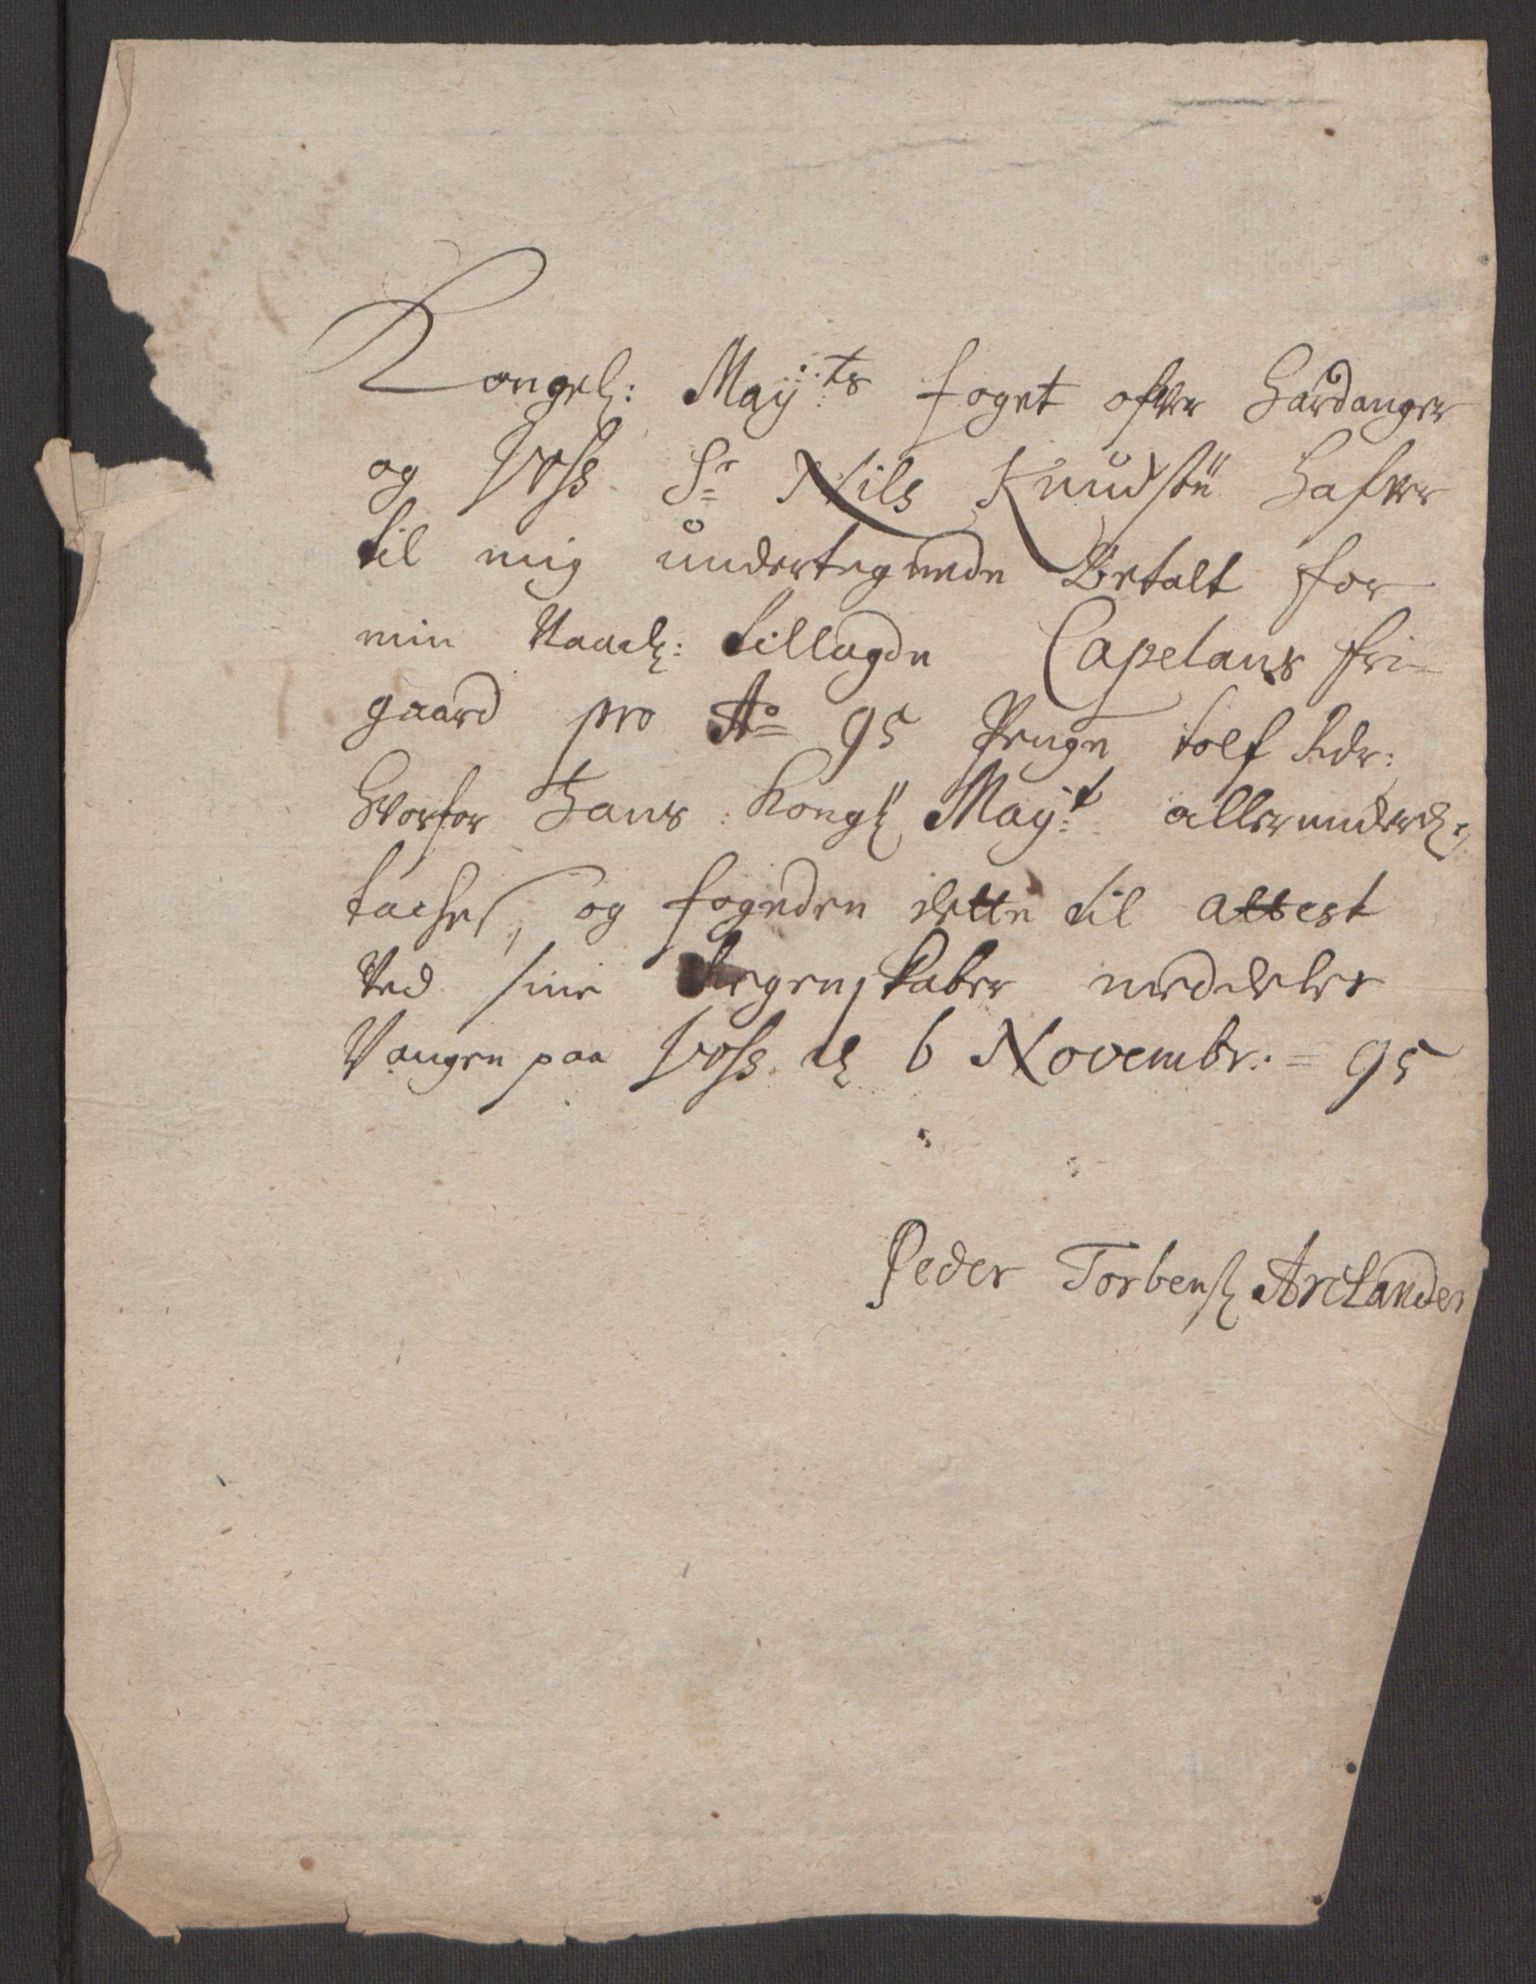 Kongel: May:ts foget ofver Hardanger
og Voss Sr Nils Knudsen hafver
til mig undertegnede Betalt for
min Naadl: tillagde Capelans fri-
gaard pro Ao 95 Penge tolf Rdr:
hvorfor Hans Kongl May:t allerunderd:
tackes, og fogeden dette til attest
Ved sine Regenskaber meddeles
Vangen paa Voss d 6 Novembr: = 95
Peder Torbens Arctander